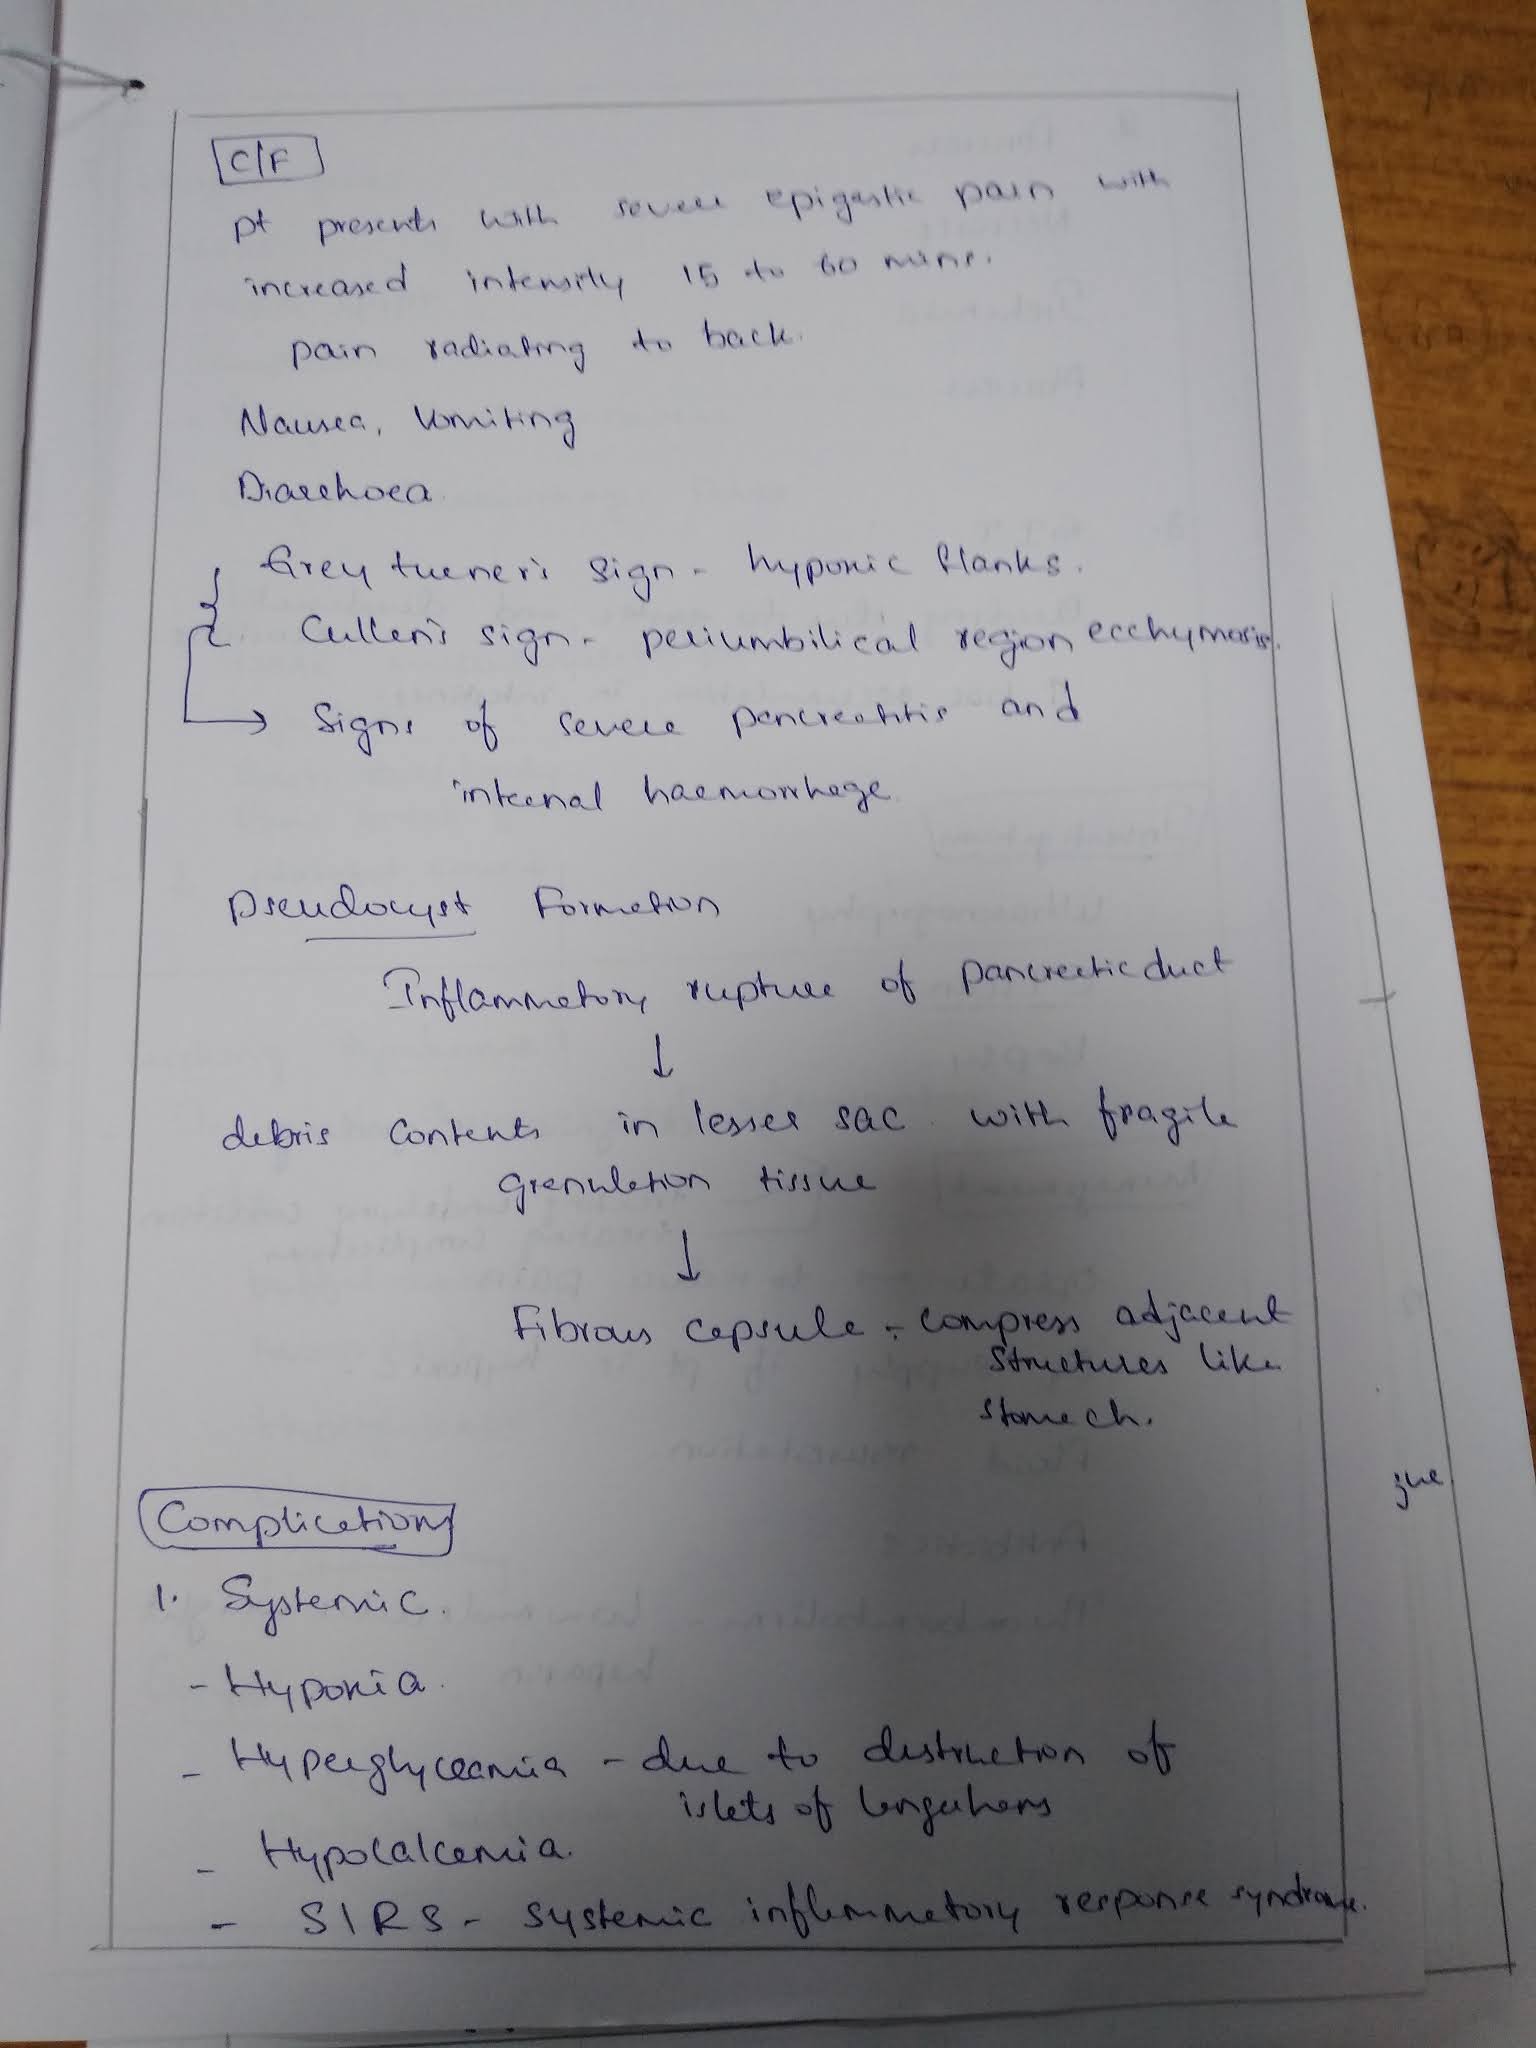 C/F
pt presents with severe epigastic pain with
increased intensity 15 to 60 mins.
pain radiating to back.
Nausea, Vomiting
Diarrhoea
Grey turner's sign - hypoxic flanks.
Cullen's sign - periumbilical region ecchymosis.
→ Signs of severe pancreatitis and
internal haemorrhage
Pseudocyst Formation
Inflammatory rupture of pancreatic duct
↓
debris contents in lesser sac with fragile
granulation tissue
↓
Fibrous capsule - compress adjacent
structures like
stomach.
Complications
1. Systemic.
- Hypoxia.
- Hyperglyceamia - due to distruction of
islets of
- Hypocalcemia.
- SIRS - systemic inflammatory response syndrome.